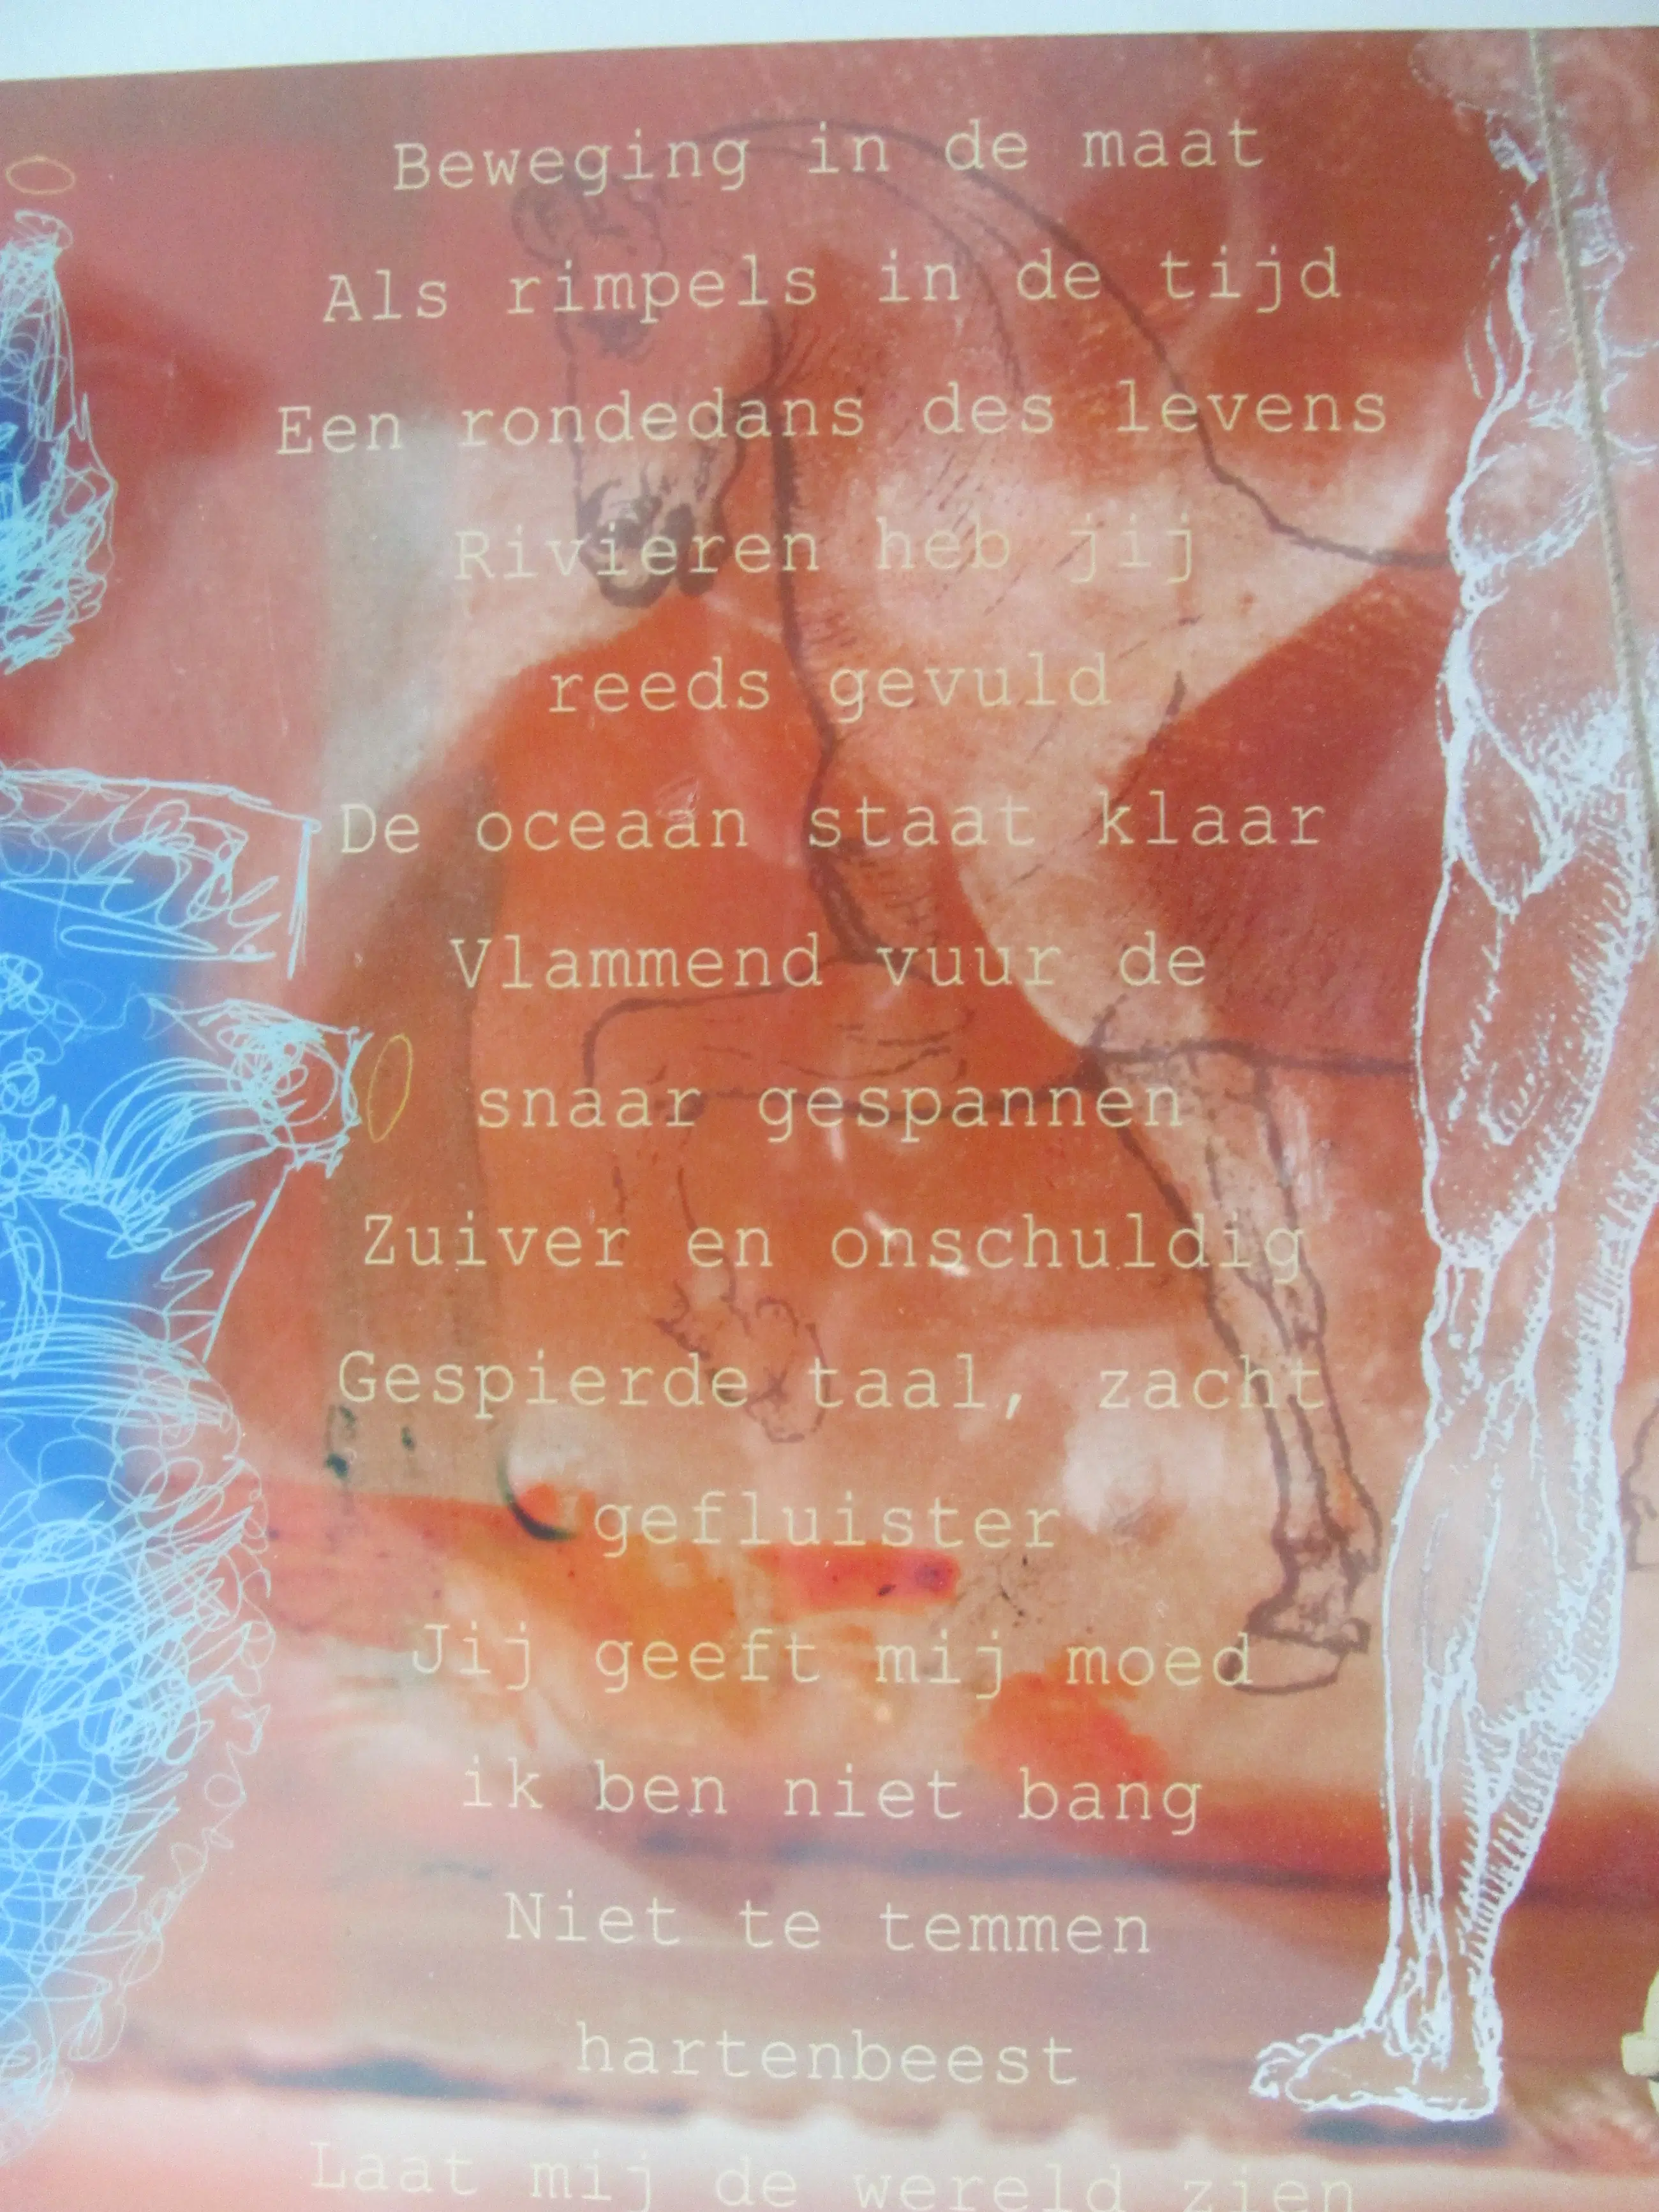 Beweging in de maat
Als rimpels in de tijd
Een rondedans des levens
Rivieren heb jij
reeds gevuld
De oceaan staat klaar
Vlammend vuur de
snaar gespannen
Zuiver en onschuldig
Gespierde taal, zacht
gefluister
Jij geeft mij moed
ik ben niet bang
Niet te temmen
hartenbeest
Laat mij de wereld zien